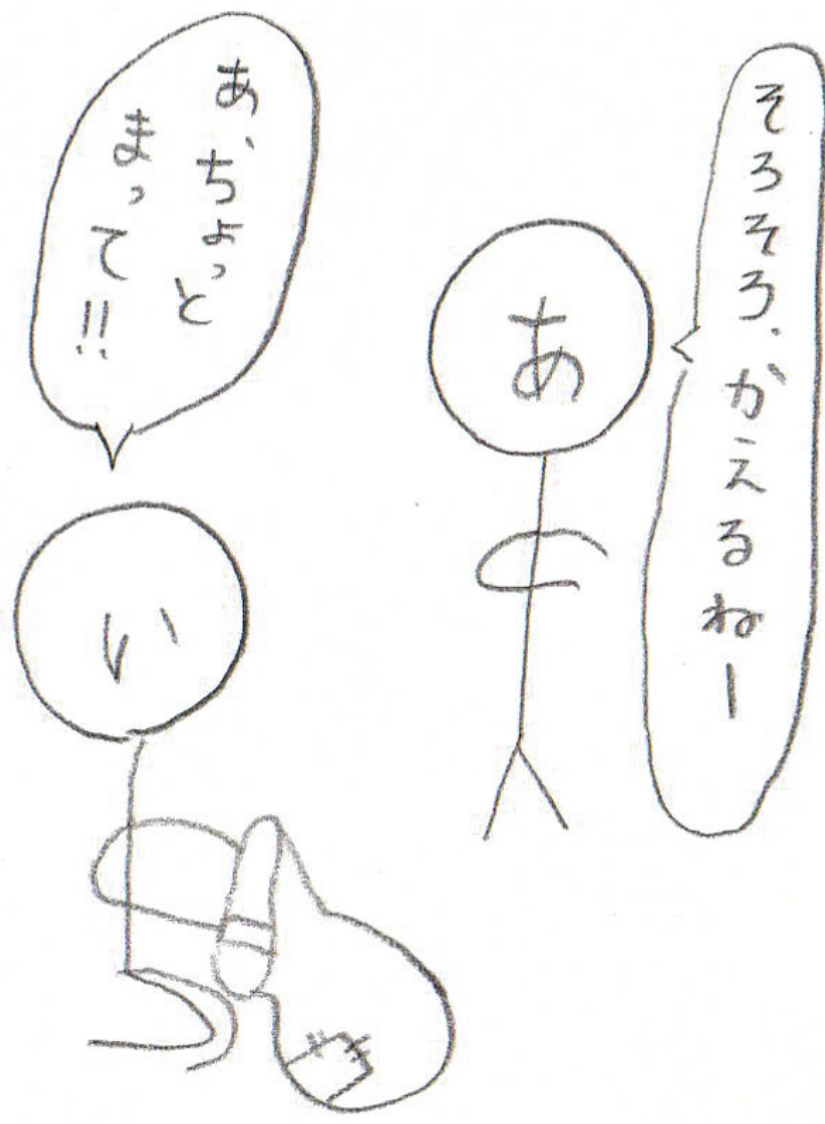 そろそろ、かえるねー
あ
あ、ちょっと
まって!!
い